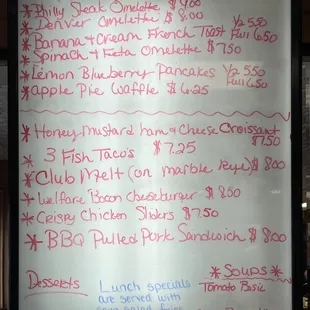 * Philly Steak Omelette $9.00
* Denver Omelette $8.00
* Banana & Cream French Toast ½ 5.50 Full 6.50
* Spinach & Feta Omelette $7.50
* Lemon Blueberry Pancakes ½ 5.50 Full 6.50
* apple Pie Waffle $6.25
* Honey mustard ham & cheese Croissant $7.50
* 3 Fish Taco's $7.25
* Club Melt (on marble Rye) $8.00
* Welfare Bacon cheeseburger $8.50
* Crispy Chicken Sliders $7.50
* BBQ Pulled Pork Sandwich $8.00
Desserts
Lunch specials
are served with
* Soups *
Tomato Basil